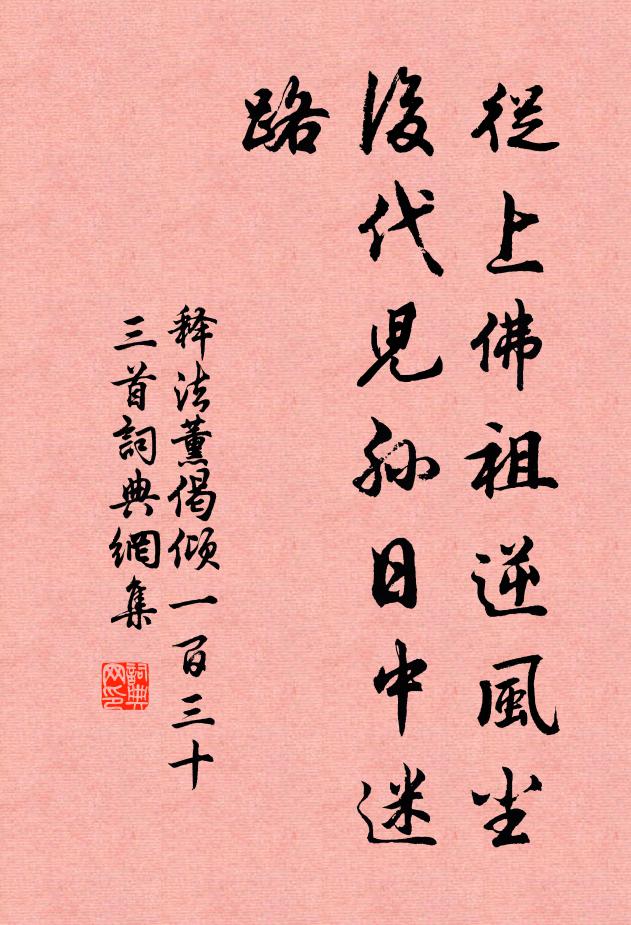 從上佛祖逆風坐
後代児孙日中迷
路
释法薰偈傾一百三十
三首詞典網集
詞典网印